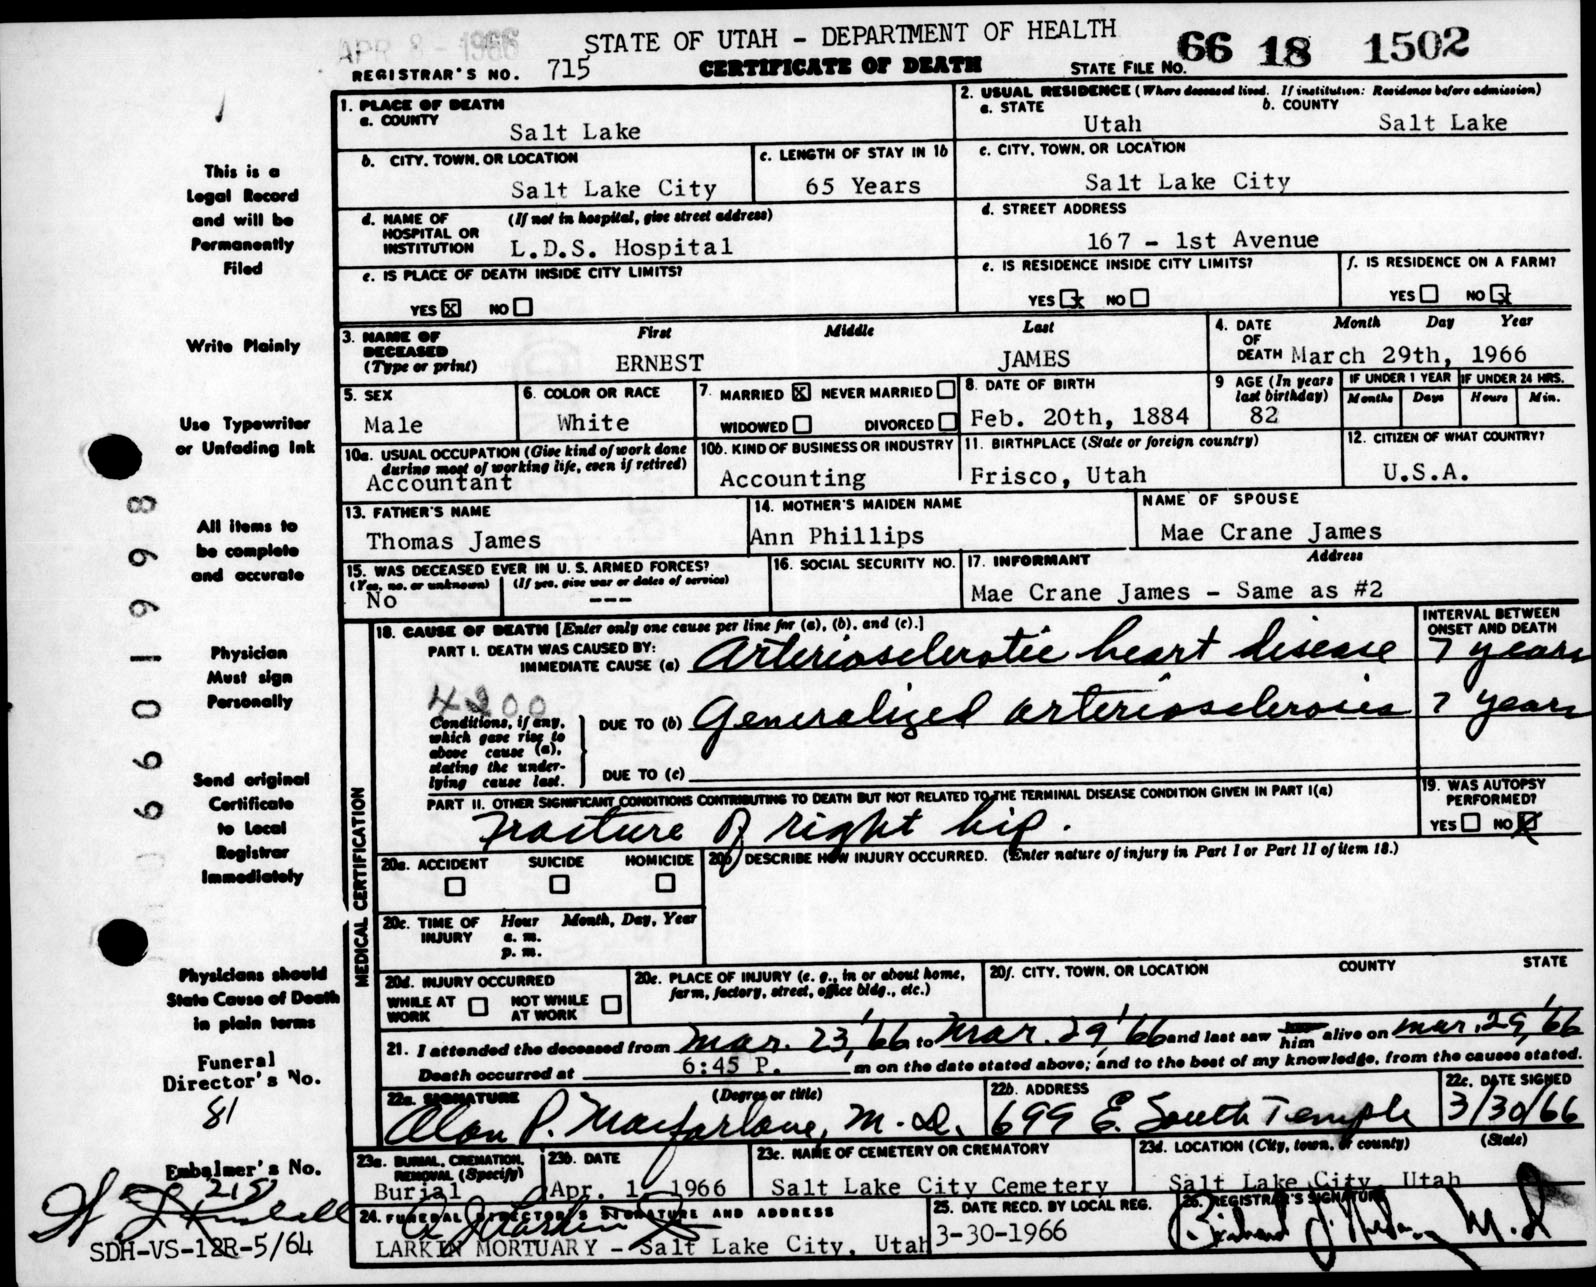 APR 8 - 1966
STATE OF UTAH - DEPARTMENT OF HEALTH
66 18 1502
REGISTRAR'S NO. 715
CERTIFICATE OF DEATH
STATE FILE NO.
1. PLACE OF DEATH
a. COUNTY
Salt Lake
2. USUAL RESIDENCE (Where deceased lived. If institution: Residence before admission)
a. STATE
Utah
b. COUNTY
Salt Lake
b. CITY, TOWN, OR LOCATION
Salt Lake City
c. LENGTH OF STAY IN 1b
65 Years
c. CITY, TOWN, OR LOCATION
Salt Lake City
d. NAME OF HOSPITAL OR INSTITUTION
(If not in hospital, give street address)
L.D.S. Hospital
d. STREET ADDRESS
167 - 1st Avenue
e. IS PLACE OF DEATH INSIDE CITY LIMITS?
YES X NO
e. IS RESIDENCE INSIDE CITY LIMITS?
YES x NO
f. IS RESIDENCE ON A FARM?
YES NO x
3. NAME OF DECEASED (Type or print)
First Middle Last
ERNEST JAMES
4. DATE OF DEATH
Month Day Year
March 29th, 1966
5. SEX
Male
6. COLOR OR RACE
White
7. MARRIED X NEVER MARRIED
WIDOWED DIVORCED
8. DATE OF BIRTH
Feb. 20th, 1884
9 AGE (In years last birthday)
82
IF UNDER 1 YEAR
Months Days
IF UNDER 24 HRS.
Hours Min.
10a. USUAL OCCUPATION (Give kind of work done during most of working life, even if retired)
Accountant
10b. KIND OF BUSINESS OR INDUSTRY
Accounting
11. BIRTHPLACE (State or foreign country)
Frisco, Utah
12. CITIZEN OF WHAT COUNTRY?
U.S.A.
13. FATHER'S NAME
Thomas James
14. MOTHER'S MAIDEN NAME
Ann Phillips
NAME OF SPOUSE
Mae Crane James
15. WAS DECEASED EVER IN U. S. ARMED FORCES?
(Yes, no, or unknown) (If yes, give war or dates of service)
No ---
16. SOCIAL SECURITY NO.
17. INFORMANT Address
Mae Crane James - Same as #2
MEDICAL CERTIFICATION
18. CAUSE OF DEATH [Enter only one cause per line for (a), (b), and (c).]
INTERVAL BETWEEN ONSET AND DEATH
PART I. DEATH WAS CAUSED BY:
IMMEDIATE CAUSE (a) Arteriosclerotic heart disease 7 years
4200
Conditions, if any, which gave rise to above cause (a), stating the underlying cause last.
DUE TO (b) Generalized arteriosclerosis 7 years
DUE TO (c)
PART II. OTHER SIGNIFICANT CONDITIONS CONTRIBUTING TO DEATH BUT NOT RELATED TO THE TERMINAL DISEASE CONDITION GIVEN IN PART I(a)
Fracture of right hip.
19. WAS AUTOPSY PERFORMED?
YES NO X
20a. ACCIDENT SUICIDE HOMICIDE
20b. DESCRIBE HOW INJURY OCCURRED. (Enter nature of injury in Part I or Part II of item 18.)
20c. TIME OF INJURY
Hour Month, Day, Year
a. m.
p. m.
20d. INJURY OCCURRED
WHILE AT WORK NOT WHILE AT WORK
20e. PLACE OF INJURY (e. g., in or about home, farm, factory, street, office bldg., etc.)
20f. CITY, TOWN, OR LOCATION COUNTY STATE
21. I attended the deceased from Mar. 23, '66 to Mar. 29, '66 and last saw him alive on Mar. 29, '66
Death occurred at 6:45 P. m on the date stated above; and to the best of my knowledge, from the causes stated.
22a. SIGNATURE (Degree or title)
Alan P. Macfarlane, M.D.
22b. ADDRESS
699 E. South Temple
22c. DATE SIGNED
3/30/66
23a. BURIAL, CREMATION, REMOVAL (Specify)
Burial
23b. DATE
Apr. 1, 1966
23c. NAME OF CEMETERY OR CREMATORY
Salt Lake City Cemetery
23d. LOCATION (City, town, or county) (State)
Salt Lake City, Utah
24. FUNERAL DIRECTOR'S SIGNATURE AND ADDRESS
LARKIN MORTUARY - Salt Lake City, Utah
25. DATE RECD. BY LOCAL REG.
3-30-1966
26. REGISTRAR'S SIGNATURE
M.D
This is a
Legal Record
and will be
Permanently
Filed
Write Plainly
Use Typewriter
or Unfading Ink
All items to
be complete
and accurate
Physician
Must sign
Personally
Send original
Certificate
to Local
Registrar
Immediately
Physicians should
State Cause of Death
in plain terms
Funeral
Director's No.
81
Embalmer's No.
SDH-VS-12R-5/64
6601998